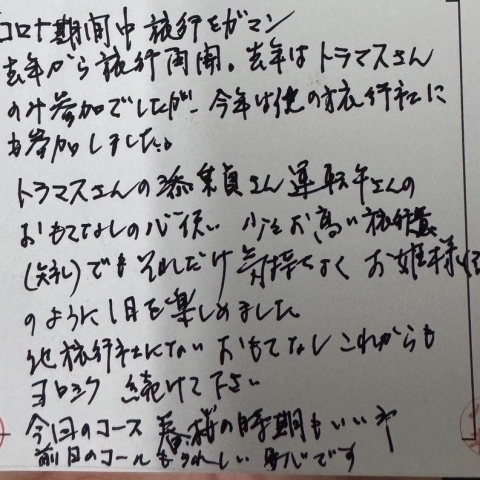 コロナ期間中旅行をガマン
去年から旅行再開。去年はトラマスさん
のみ参加でしたが、今年は他の旅行社に
も参加しました。
トラマスさんの添乗員さん運転手さんの
おもてなしの心使い 少々お高い旅行費
(失礼)でもそれだけ気持ちよくお姫様
のように1日を楽しめました
他旅行社にないおもてなしこれからも
ヨロシク 続けて下さい
今回のコース 桜の時期もいい
前日のコールもうれしい です